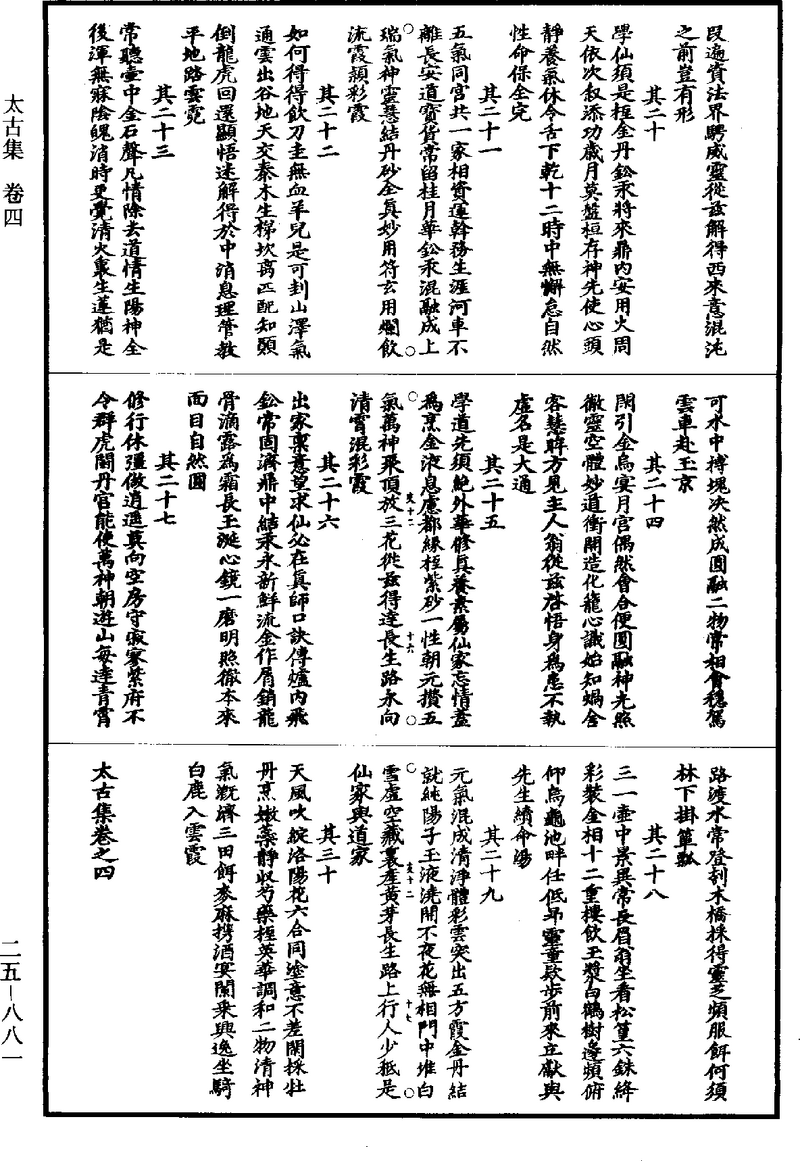 太古集 卷四
二五－八八一
段遍資法界騁威靈從茲解得西來意混沌
之前豈有形
其二十
學仙須是桎金丹鈆汞將來鼎內安用火周
天依次叙添功歲月莫盤桓存神先使心頭
靜養氣休令舌下乾十二時中無懈怠自然
性命保全完
其二十一
五氣同宮共一家相資運斡務生涯河車不
離長安道寶貨常留桂月華鈆汞混融成上
瑞氣神靈慧結丹砂全真妙用符玄用爛飲
流霞頦彩霞
其二十二
如何得得飲刀圭無血羊兒是可刲山澤氣
通雲出谷地天交泰木生梯坎离匹配知顛
倒龍虎回還顯悟迷解得於中消息理管教
平地路雲霓
其二十三
常聽壺中金石聲凡情除去道情生陽神全
後渾無寐陰魄消時更覺清火裏生蓮猶是
可水中搏塊决然成圓融二物常相會穩駕
雲車赴玉京
其二十四
閑引金烏宴月宮偶然會合便圓融神光照
徹靈空體妙道衝開造化籠心識始知蝸舍
客慧眸方見主人翁從茲啓悟身爲患不執
虛名是大通
其二十五
學道先須絶外華修真養素屬仙家忘情蓋
爲烹金液息慮都緣桎紫砂一性朝元攢五
氣萬神聚頂放三花從茲得達長生路永向
清霄混彩霞
其二十六
出家稟意望求仙必在真師口訣傳爐內飛
鈆常固濟鼎中結汞永新鮮流金作屑銷龍
骨滴露爲霜長玉涎心鏡一磨明照徹本來
面目自然圓
其二十七
修行休彊傲逍遥莫向空房守寂寥紫府不
令群虎鬬丹宮能使萬神朝遊山每達青霄
路渡水常登刳木橋採得靈芝頻服餌何須
林下掛簞瓢
其二十八
三一壺中景異常長眉翁坐看松篁六銖絳
彩裝金相十二重樓飲玉漿白鶴樹邊頻俯
仰烏龜池畔任低昂靈童欵步前來立獻與
先生續命湯
其二十九
元氣混成清淨體彩雲突出五方霞金丹結
就純陽子玉液澆開不夜花無相門中堆白
雪虛空藏裏產黃芽長生路上行人少秪是
仙家與道家
其三十
天風吹綻洛陽花六合同塗意不差閑採牡
丹烹嫩蘂靜收芍藥桎英華調和二物清神
氣溉濟三田餌麥麻撈酒宴闌乘興逸坐騎
白鹿入雲霞
太古集卷之四